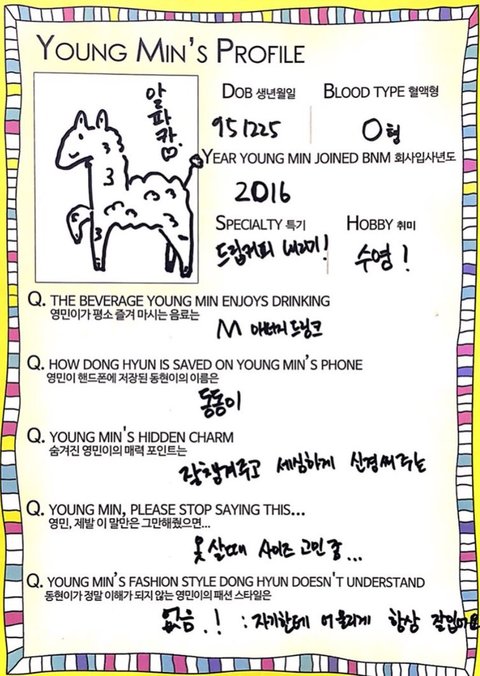 YOUNG MIN'S PROFILE
알파카♡
DOB 생년월일
BLOOD TYPE 혈액형
951225
O형
YEAR YOUNG MIN JOINED BNM 회사입사년도
2016
SPECIALTY 특기
HOBBY 취미
드립커피 내리기!
수영!
Q. THE BEVERAGE YOUNG MIN ENJOYS DRINKING
영민이가 평소 즐겨 마시는 음료는
M 에너지드링크
Q. HOW DONG HYUN IS SAVED ON YOUNG MIN'S PHONE
영민이 핸드폰에 저장된 동현이의 이름은
동동이
Q. YOUNG MIN'S HIDDEN CHARM
숨겨진 영민이의 매력 포인트는
잘챙겨주고 세심하게 신경써주는
Q. YOUNG MIN, PLEASE STOP SAYING THIS...
영민, 제발 이 말만은 그만해줬으면...
옷 살때 사이즈 고민 중...
Q. YOUNG MIN'S FASHION STYLE DONG HYUN DOESN'T UNDERSTAND
동현이가 정말 이해가 되지 않는 영민이의 패션 스타일은
없음.! : 자기한테 어울리게 항상 잘입어요